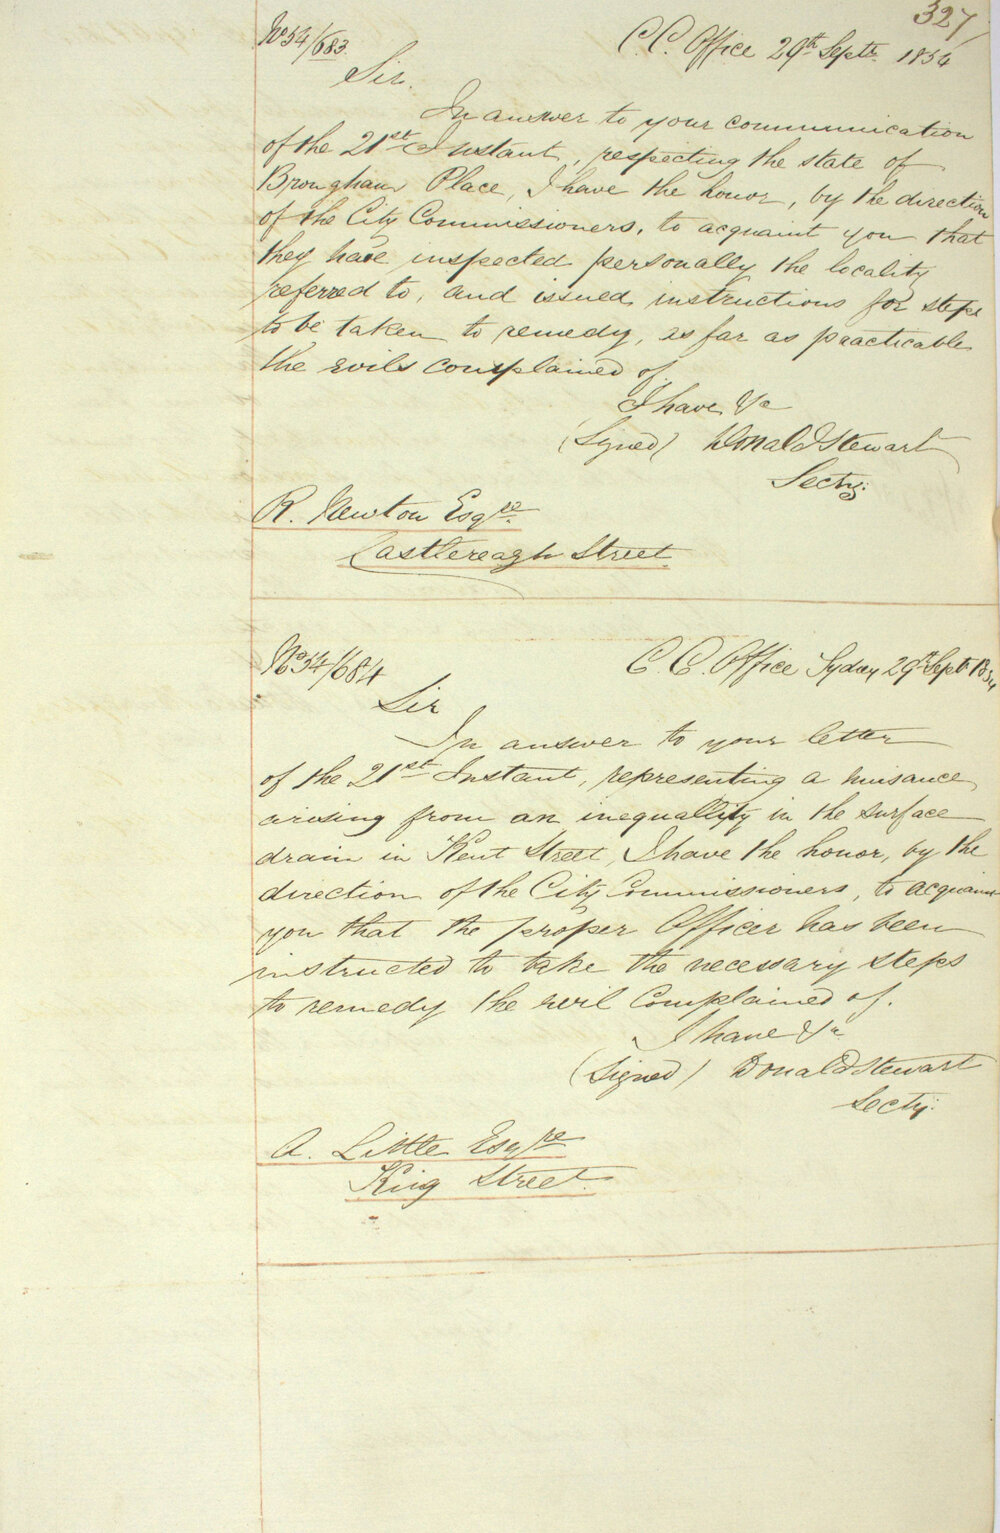 327
No 54/683. C.C. Office 29th Septr. 1854
Sir.
In answer to your communication
of the 21st Instant, respecting the state of
Brougham Place, I have the honor, by the direction
of the City Commissioners, to acquaint you that
they have inspected personally the locality
referred to, and issued instructions for steps
to be taken to remedy, as far as practicable
the evils complained of.
I have &c
(Signed) Donald Stewart
Secty:
R. Newton Esqre.
Castlereagh Street.
No 54/684 C.C. Office Sydney 29th Sept. 1854
Sir
In answer to your letter
of the 21st Instant, representing a nuisance
arising from an inequallity in the surface
drain in Kent Street, I have the honor, by the
direction of the City Commissioners, to acquaint
you that the proper Officer has been
instructed to take the necessary steps
to remedy the evil Complained of.
I have &c
(Signed) Donald Stewart
Secty:
A. Little Esqre
King Street.